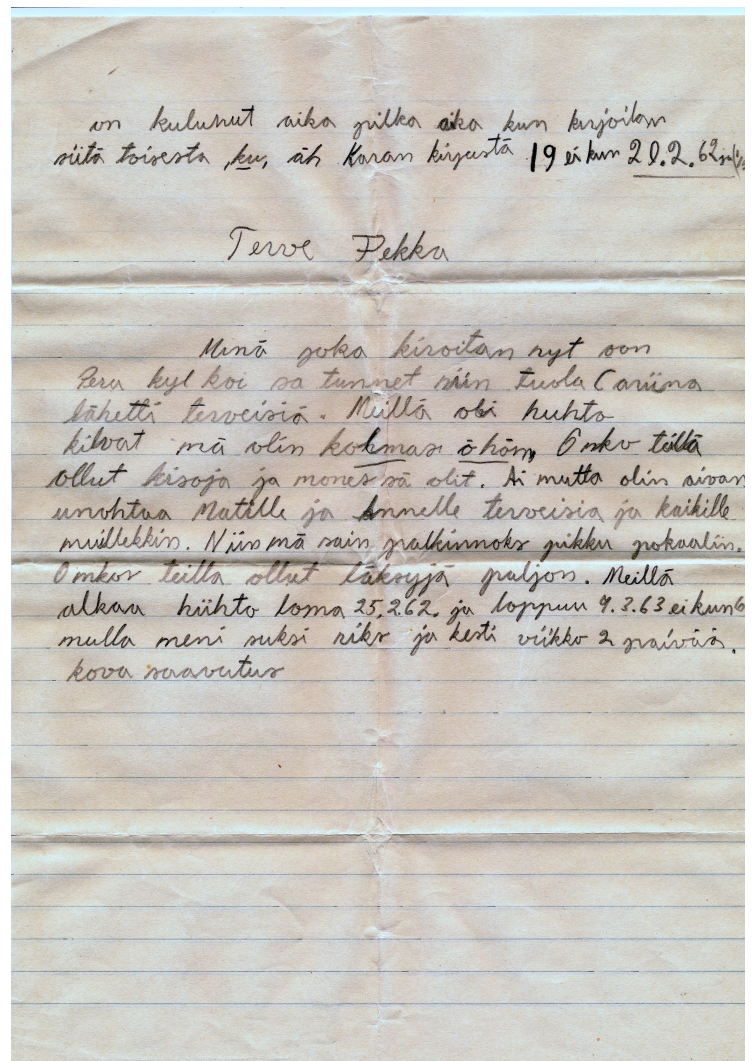 on kulunut aika pitkä aika kun kirjoitan
siitä toisesta, ku, äh Karan kirjastä 19 ei kun 20.2.62
Terve Pekka
Minä joka kiroitan nyt oon
Pera kyl koi sa tunnet niin tuola Cariina
lähetti terveisiä. Meillä oli huhto
kilvat mä olin kolmas öhöm, Onko teillä
ollut kisoja ja mones sä olit. Ai mutta olin aivan
unohtaa Matille ja Annelle terveisia ja kaikille
muillekkin. Niin mä sain palkinnoks pikku pokaalin.
Onkos teilla ollut läksyjä paljon. Meillä
alkaa hiihto loma 25.2.62. ja loppuu 4.3.63 ei kun 6
mulla meni suksi riks ja kesti viikko 2 päivää.
kova saavutus